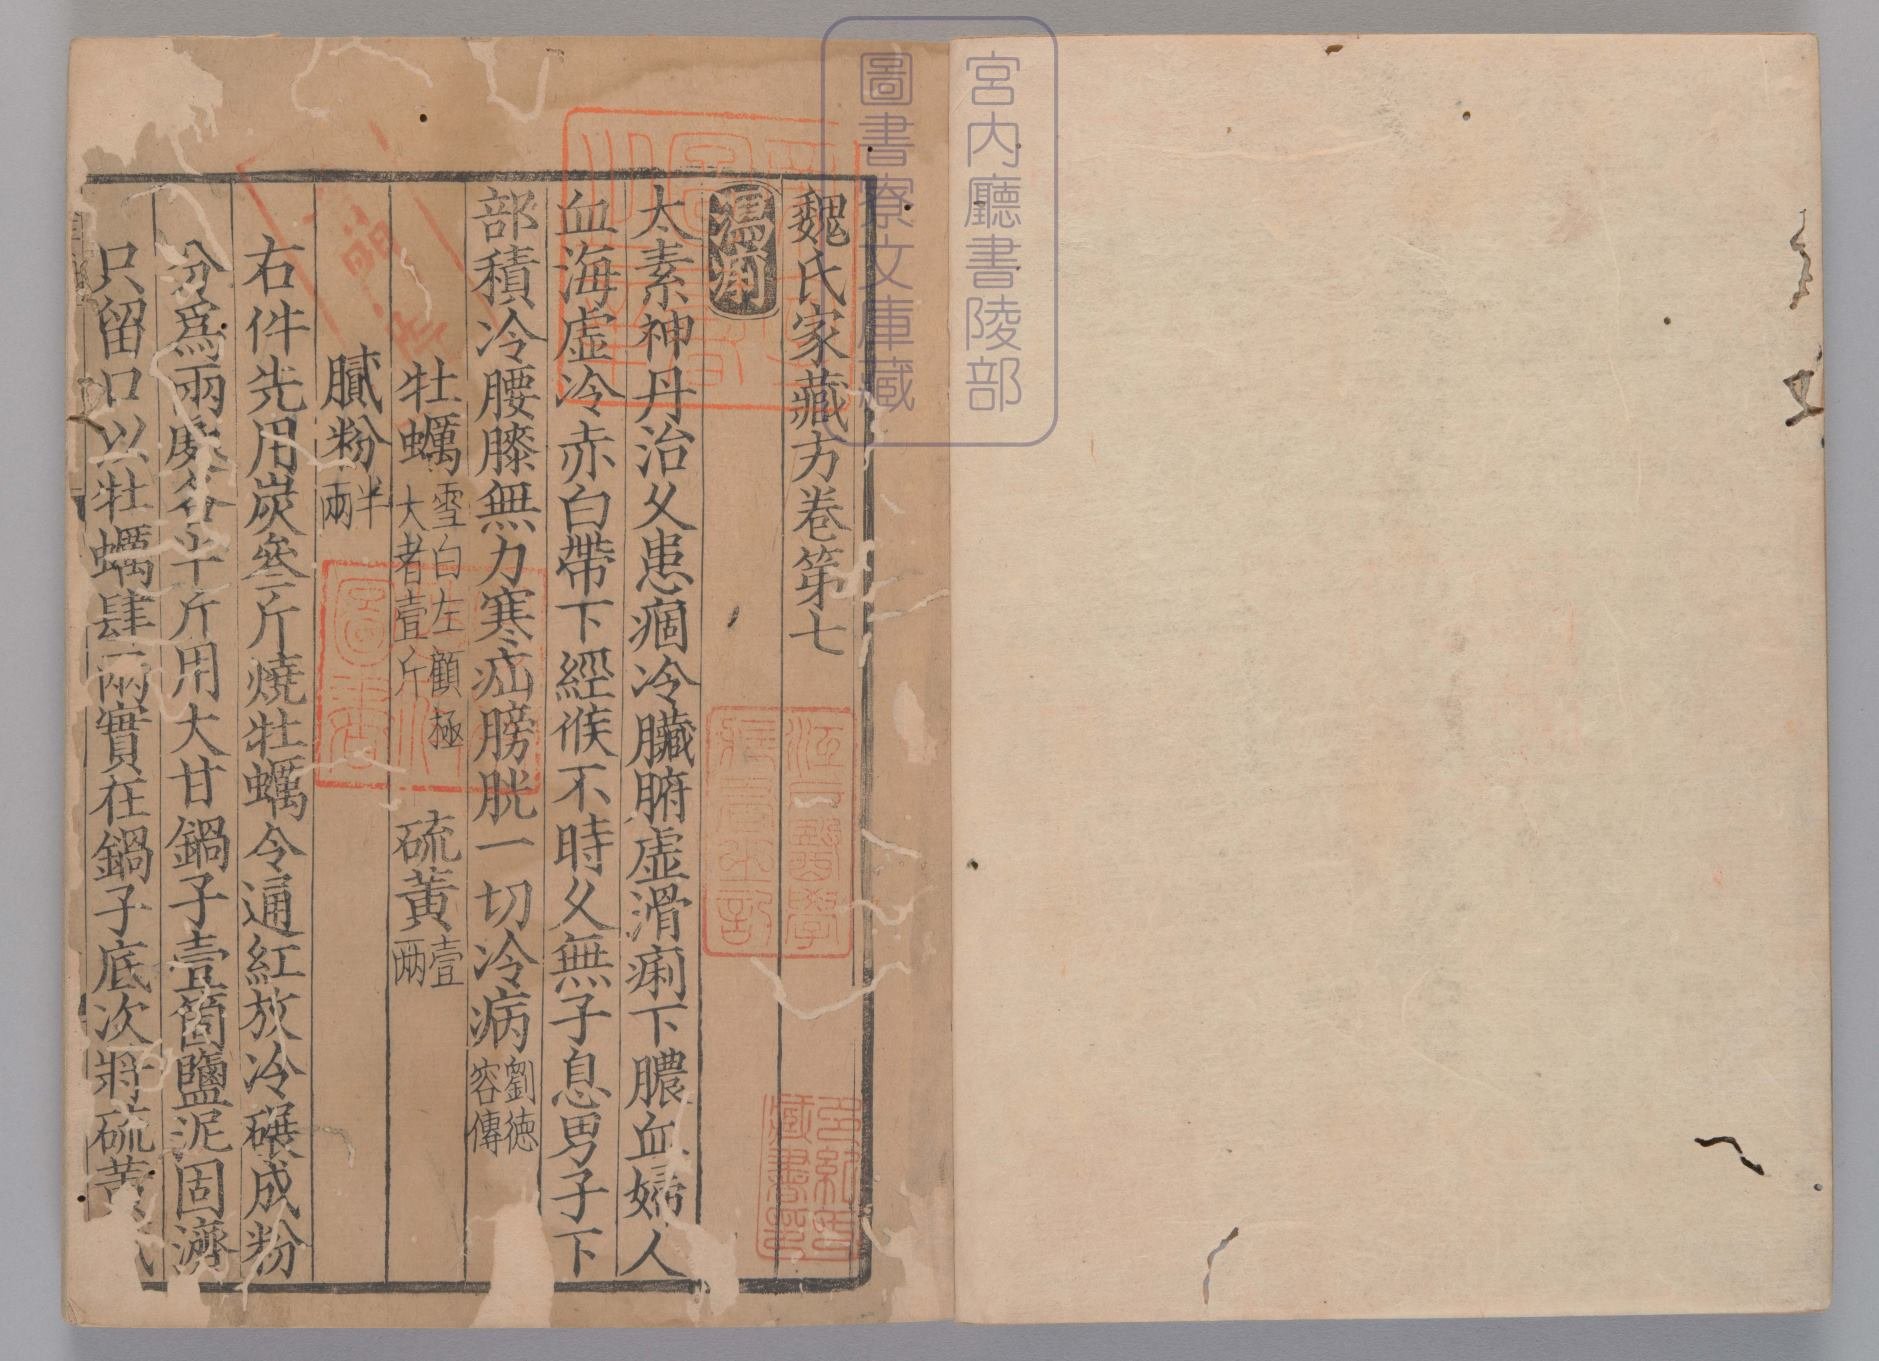 宮內廳書陵部
圖書寮文庫藏
魏氏家藏方卷第七
瀉痢
太素神丹治久患痼冷臟腑虛滑痢下膿血婦人
血海虛冷赤白帶下經候不時久無子息男子下
部積冷腰膝無力寒疝膀胱一切冷病劉德容傳
牡蠣雪白左顧極大者壹斤 硫黃壹兩
膩粉半兩
右件先用炭叄斤燒牡蠣令通紅放冷碾成粉
分爲兩處各半斤用大甘鍋子壹箇鹽泥固濟
只留口以牡蠣肆兩實在鍋子底次將硫黃
江戶醫學
藏書之記
多紀氏
藏書印